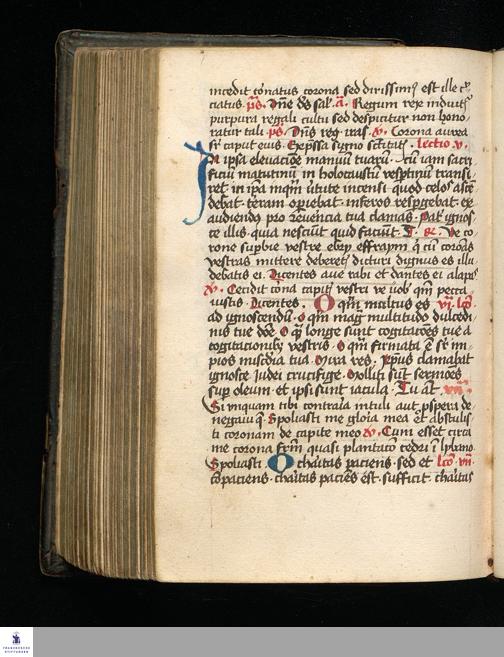 incedit co͂natus corona sed dirissim͂ est ille
ciatus. p͂s. Dn͂e ds͂ sal͂. a͂. Regum rex induit͂
purpura regali cultu sed despicitur non hono
ratur tali. p͂s. Dn͂s reg͂. iras. v. Corona aurea
sr͂ caput eius. Exp͂ssa signo sc͂titat͂. lectio v.
In ipsa eleuac͂one manuu͂ tuaru͂. cu͂ iam sacri
ficiu͂ matutinu͂ in holocaustu͂ vesp͂tinu͂ transi
ret in ip͂a inq͂m u͂tute incensi quod celos asce͂
debat teram op͂iebat inferos resp͂gebat ex
audiendus pro reuerencia tua clamas. Pat͂ ignos
ce illis quia nesciu͂t quid faciu͂t. R. Ve co
rone sup͂bie vestre
vestras mittere deberet͂ dicturi dignus es illu
debatis ei. Dicentes aue rabi et dantes ei alapas
v. Cecidit coro͂na capit͂ vestri ve uob͂ q͂m pecca
uistis. Dicentes. O q͂m multus es vi. lc͂o
ad ignoscendu͂. o q͂m mag͂ multitudo dulcedi
nis tue do͂e. O q͂ longe sunt cogitaco͂es tue a
cogitacionib͂ vestris. O q͂m firmata e͂ sr͂ im
pios mis͂cdia tua. Mira res. Xp͂us clamabat
ignosce Iudei crucifige. Molliti su͂t sermo͂es
sup͂ oleum et ipsi sunt iacula. Tu aut͂
Si vnquam tibi contraria intuli aut p͂spera de
negaui q͂. Spoliasti me gloria mea et abstulis
ti coronam de capite meo v. Cum esset circa
me corona fr͂m quasi plantacio cedri i͂ lybano
Spoliasti. O charitas paciens. sed et lc͂o. vii
co͂paciens. charitas pacie͂s est. sufficit. charitas
FRANCKESCHE
STIFTUNGEN